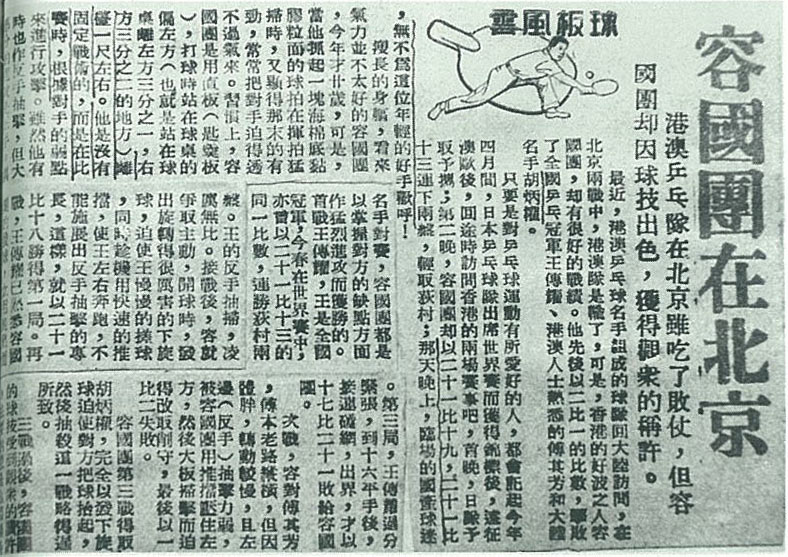 容國團在北京
港澳乒乓隊在北京雖吃了敗仗，但容
國團却因球技出色，獲得觀衆的稱許。
球板風雲
最近，港澳乒乓球名手組成的球隊回大陸訪問，在
北京兩戰中，港澳隊是輸了，可是，香港的好波之人容
國團，却有很好的戰績。他先後以二比一的比數，擊敗
了全國乒乓冠軍王傳耀、港澳人士熟悉的傅其芳和大陸
名手胡炳權。
只要是對乒乓球運動有所愛好的人，都會記起今年
四月間，日本乒乓球隊出席世界賽而獲得錦標後，遠征
澳歐後，回途時訪問香港的兩場賽事吧，首晚，日隊予
取予攜；第二晚，容國團却以二十一比十九，二十一比
十三連下兩盤，輕取荻村；那天晚上，臨場的國球迷
，無不爲這位年輕的好手歡呼！
瘦長的身軀，看來
氣力並不太好的容國團
，今年才廿歲，可是，
當他抓起一塊海棉底黏
膠粒面的球拍在揮拍猛
掃時，又顯得那末的有
勁，常常把對手迫得透
不過氣來。習慣上，容
國團是用直板（匙羹板
），打球時站在球桌的
偏左方（也就是站在球
桌離左方三分之一，右
方三分之二的地方）離
檯一尺左右。他是沒有
固定戰術的，而是在比
賽時，根據對手的弱點
來進行攻擊。雖然他有
時也作反手抽擊，但大
名手對賽，容國團都是
以掌握對方的缺點方面
作猛烈進攻而獲勝的。
首戰王傳耀，王是全國
冠軍，今春在世界賽中，
亦曾以二十一比十三的
同一比數，連勝荻村兩
盤。王的反手抽掃，凌
厲無比。接戰後，容就
爭取主動，開球時，發
出旋轉得很厲害的下旋
球，迫使王慢慢的搓球
，同時趁機用快速的推
擋，使王左右奔跑，不
能施展出反手抽擊的專
長，這樣，就以二十一
比十八勝得第一局。再
戰，王傳耀已熟悉容國
。第三局，王傳耀過分
緊張，到十六平手後，
接連碰網，出界，才以
十七比二十一敗給容國
團。
次戰，容對傅其芳
，傅本老路縱橫，但因
體胖，轉動較慢，且左
邊（反手）抽擊力弱，
被容國團用推擋壓住左
方，然後大板掃擊而迫
得改取削守，最後以一
比二失敗。
容國團第三戰得取
胡炳權，完全以發下旋
球迫使對方把球抬起，
然後抽殺這一戰略得逞
所致。
三戰過後，容國團
的球技受到觀衆的